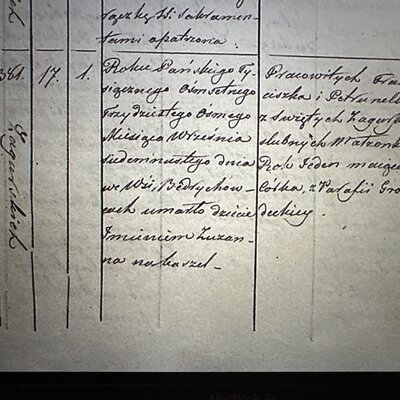 łączkę SS. Sakramen-
tami opatrzona.
381. 17. 1.
Roku Pańskiego Ty-
siącznego Ośmsetnego
Trzydziestego Ósmego
Miesiąca Września
Siedemnastego dnia
we Wsi Bedrychow-
cach umarło dziecie
Imieniem Zuzan-
na na kaszel-
Pracowitych Fran
ciszka i Petruneli
z Swiętych Zagurs
slubnych Małżonk
Rok Jeden mające
Córka, z Parafii Gro
deckiey.
Zagórskich